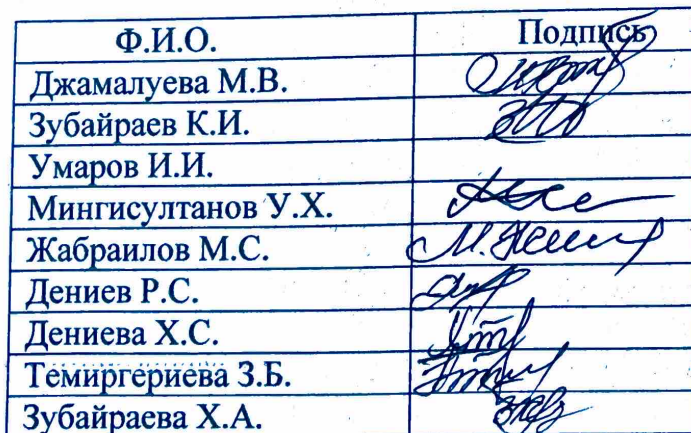 Ф.И.О. Подпись
Джамалуева М.В.
Зубайраев К.И.
Умаров И.И.
Мингисултанов У.Х.
Жабраилов М.С.
Дениев Р.С.
Дениева Х.С.
Темиргериева З.Б.
Зубайраева Х.А.